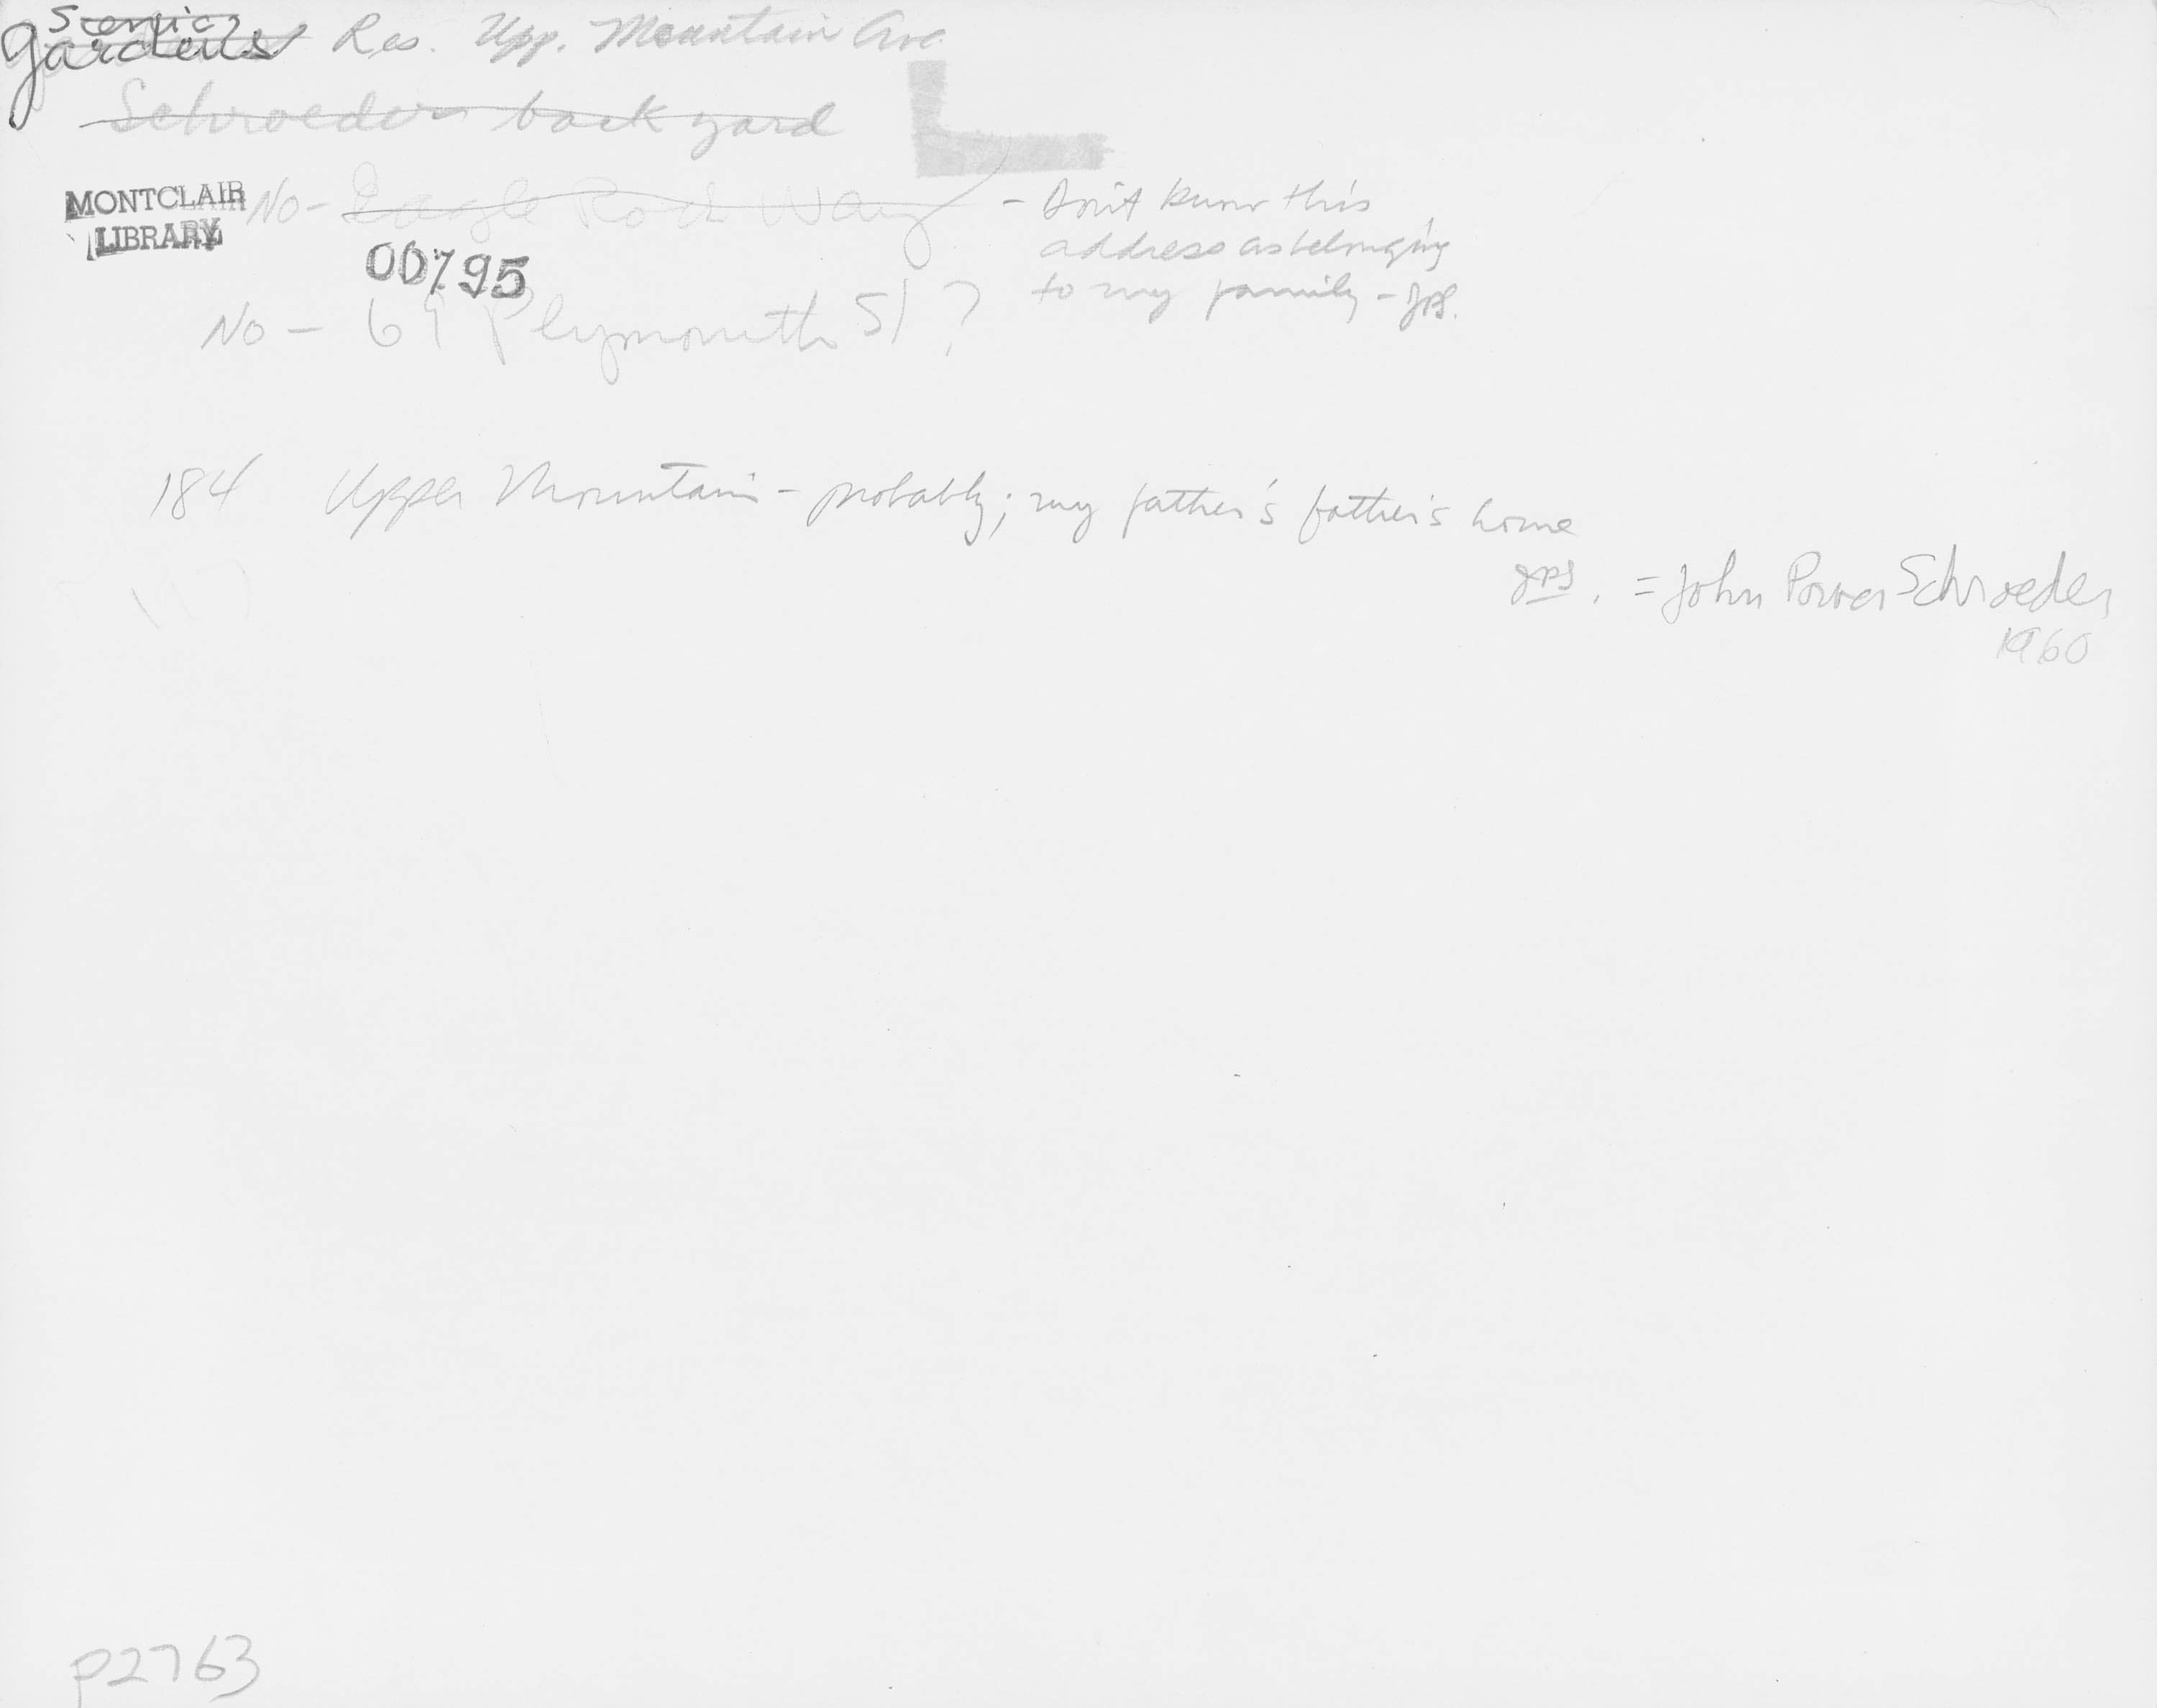 Scenic
gardens Res. Upp. Mountain Ave.
Schroeder back yard
MONTCLAIR
LIBRARY
No - Eagle Rock Way
- Don't know this
address as belonging
to my family - JPS.
00795
No - 69 Plymouth St ?
184 Upper Mountain - probably; my father's father's home
JPS. = John Power Schroeder
1960
P2763